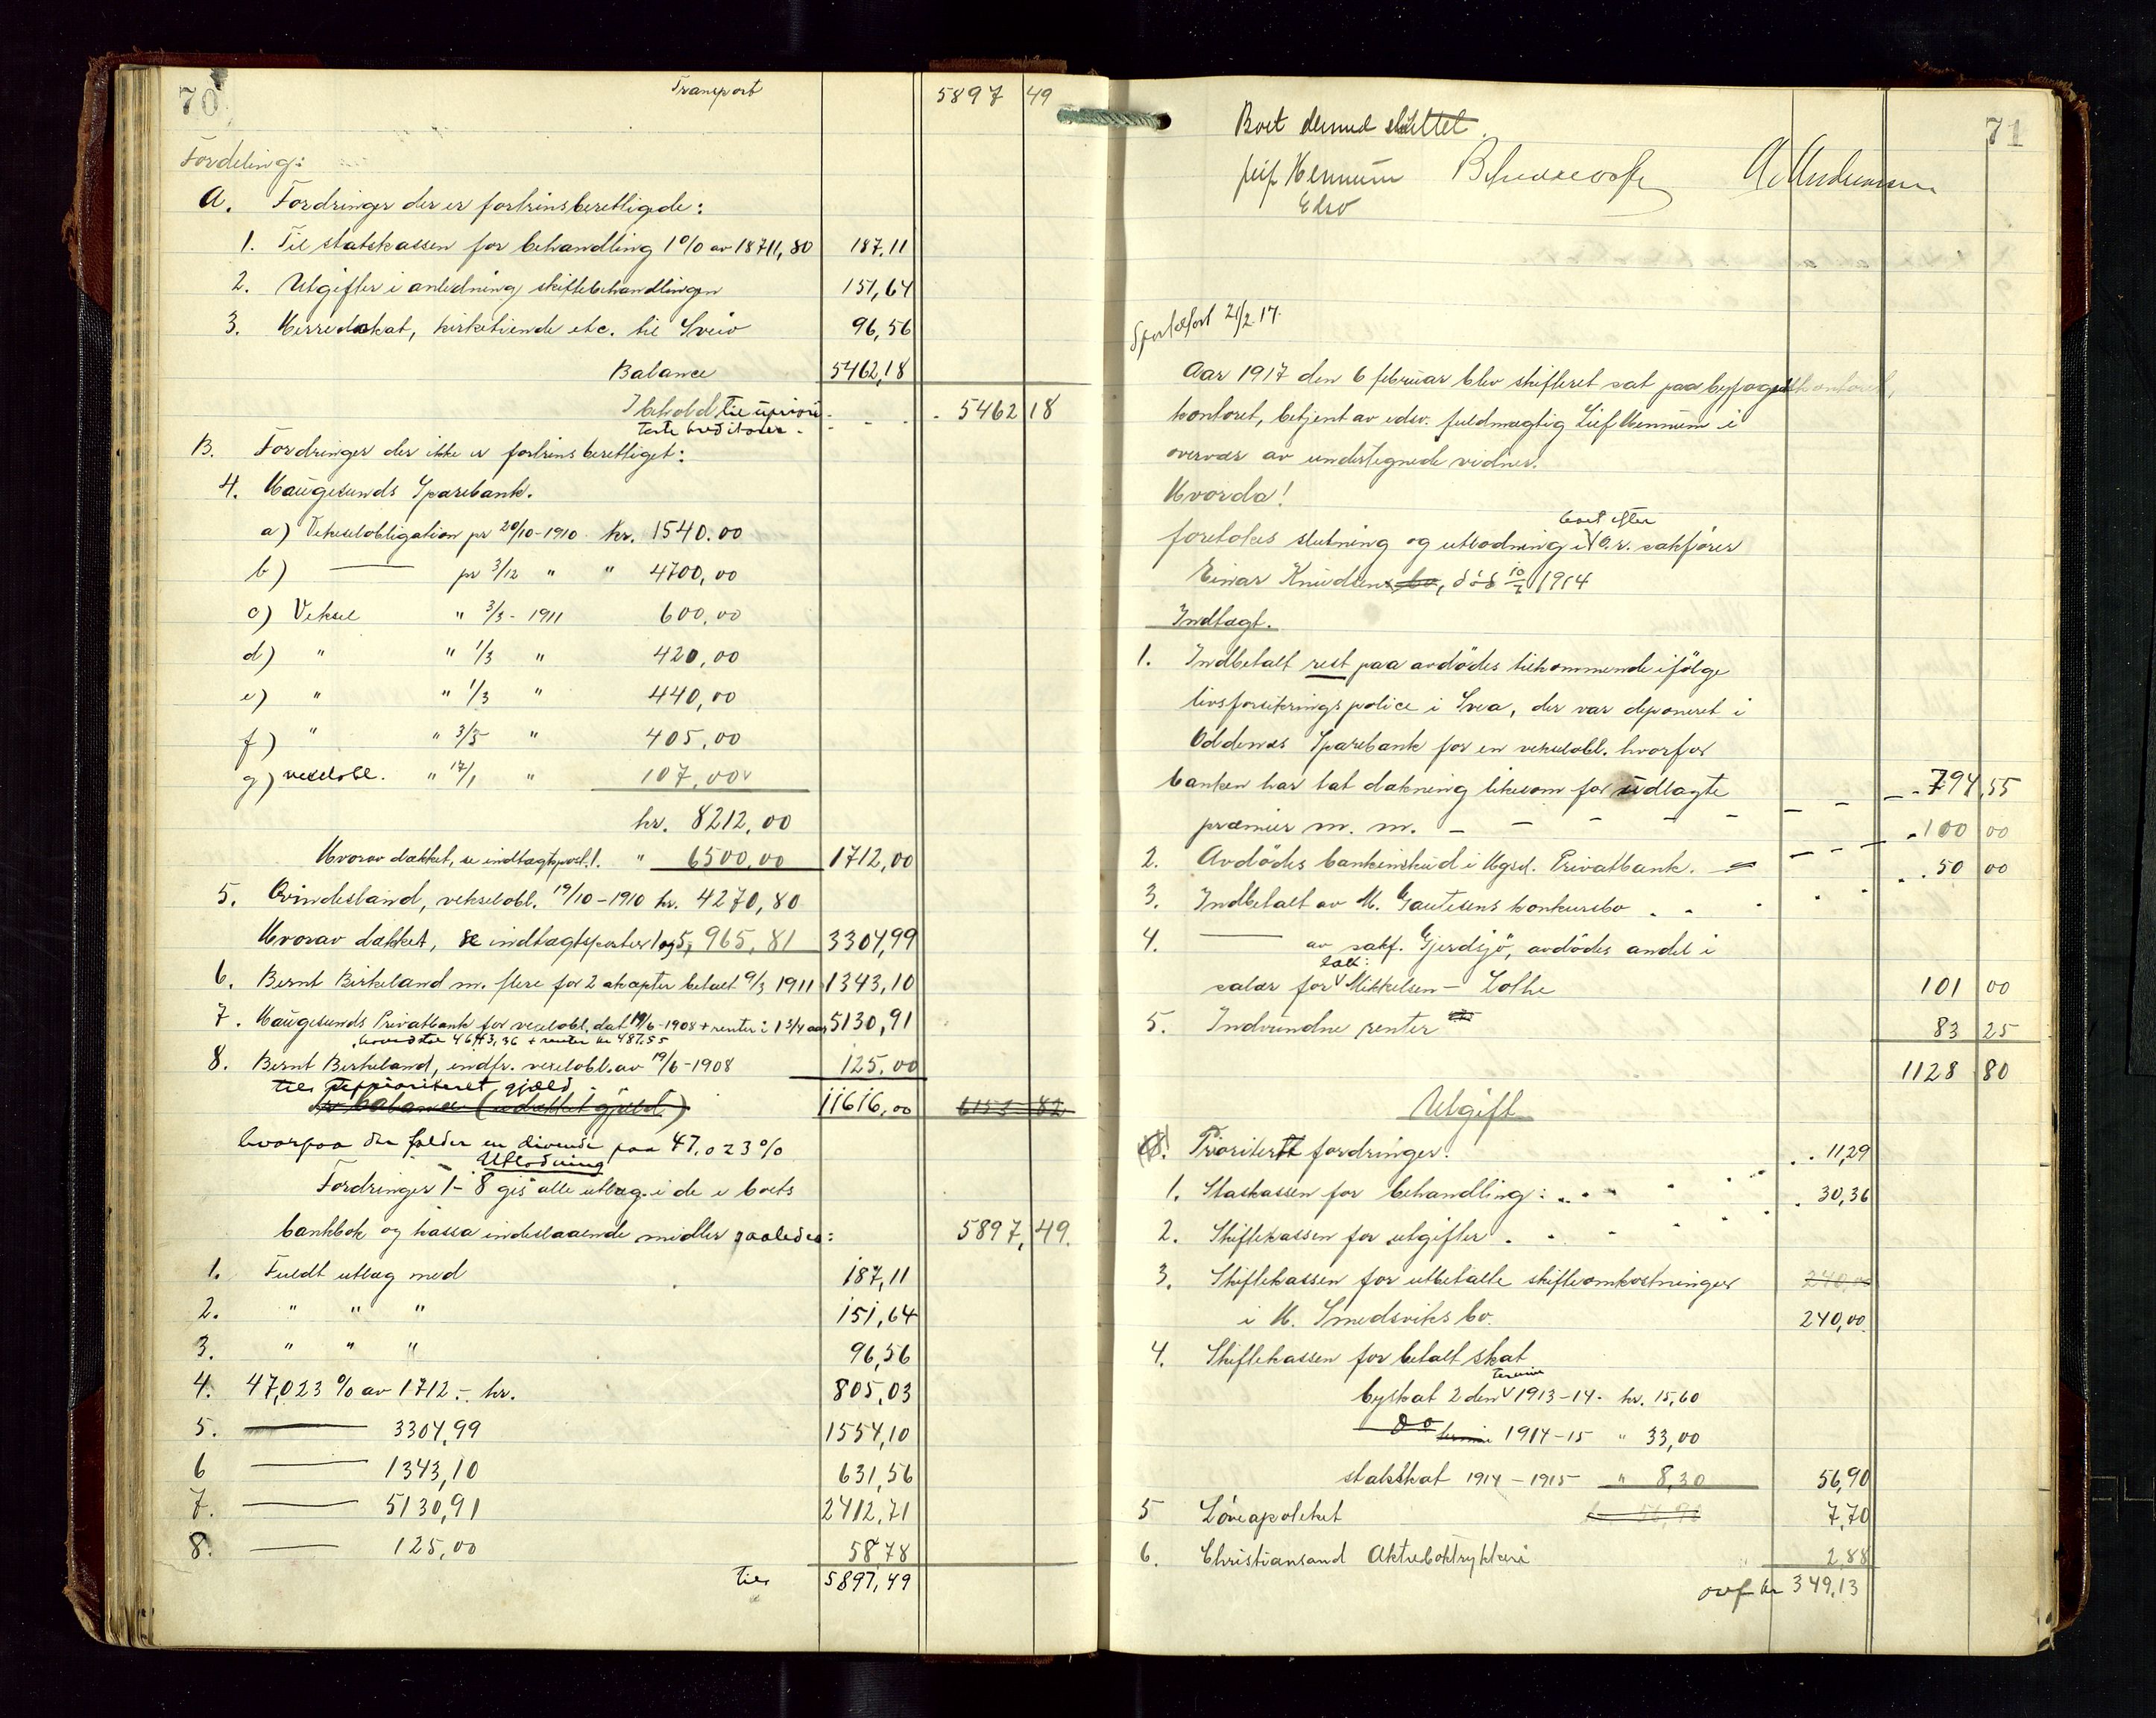 70
Transport 5897 49
Fordeling:
A. Fordringer der er fortrinsberettigede:
1. Til statskassen for behandling 1% av 18711,80 187,11
2. Utgifter i anledning skiftebehandlingen 151,64
3. Herredskat, kirketiende etc. til Sveio 96,56
Balance 5462,18
I behold til upriori- 5462 18
terte kreditorer.
B. Fordringer der ikke er fortrinsberettiget:
4. Haugesunds Sparebank.
a) Vekselobligation pr 20/10-1910 kr. 1540.00
b) —— pr 3/12 " " 4700,00
c) Veksel " 3/3 - 1911 600,00
d) " " 1/3 " 420,00
e) " " 1/3 " 440,00
f) " " 3/5 " 405,00
g) vekselobl. " 17/1 " 107,00
kr. 8212,00
Hvorav dækket, se indtægtspost 1. " 6500,00 1712,00
5. Kvindesland, vekselobl. 19/10-1910 kr. 4270,80
Hvorav dækket, se indtægtsposter 1 og 5, 965,81 3304,99
6. Bernt Birkeland m. flere for 2 akcepter betalt 9/3 1911 1343,10
7. Haugesunds Privatbank for vekselobl. dat 19/6-1908 + renter i 1 3/4 aar 5130,91
hovedstol 4643,36 + renter kr 487,55
8. Bernt Birkeland, indfr. vekselobl. av 19/6-1908 125,00
til uprioriteret gjæld
er balance (udækket gjæld) 11616,00 6153 82
hvorpaa der falder en dividende paa 47,023%
Utlodning
Fordringer 1-8 gis alle utlæg i de i boets
bankbok og kassa indestaaende midler saaledes: 5897,49.
1. Fuldt utlæg med 187,11
2. " " " 151,64
3. " " " 96,56
4. 47,023 % av 1712.- kr. 805,03
5. —— 3304,99 1554,10
6 —— 1343,10 631,56
7. —— 5130,91 2412,71
8. —— 125,00 58,78
til 5897,49
71
Boet dermed sluttet.
Leif Hennum
Edsv
Sportelført 21/2 17.
Aar 1917 den 6 februar blev skifteret sat paa byfogedkontoret,
kontoret, betjent av edsv. fuldmægtig Leif Hennum i
overvær av undertegnede vidner.
Hvorda!
boet efter
foretokes slutning og utlodning i O.r. sakfører
Einar Knudsens bo, død 10/7 1914
Indtægt.
1. Indbetalt rest paa avdødes tilkommende ifølge
livsforsikringspolice i Svea, der var deponeret i
Oddernes Sparebank for en vekselobl. hvorfor
banken har tat dækning likesom for utlagte 794,55
præmier m. m. — — — — — 100 00
2. Avdødes bankinskud i Hgsd. Privatbank. 50 00
3. Indbetalt av M. Gautesens konkursbo
4. —— av sakf. Gjerdsjø, avdødes andel i
salær for Mikkelsen - Lothe 101 00
5. Indvundne renter 83 25
1128 80
Utgift
Prioritert fordringer. 11,29
1. Staskassen for behandling: 30,36
2. Skiftekassen for utgifter .
3. Skiftekassen for utbetalte skifteomkostninger 240,00
i H. Smedsviks bo. 240,00
4. Skiftekassen for betalt skat
termin
byskat 2 den 1913-14. kr. 15,60
Do termin 1914-15 " 33,00
statsskat 1914 - 1915 " 8,30 56,90
5 Løveapoteket 56,90 7,70
6. Christiansand Aktieboktrykkeri 2,88
ovf kr 349,13